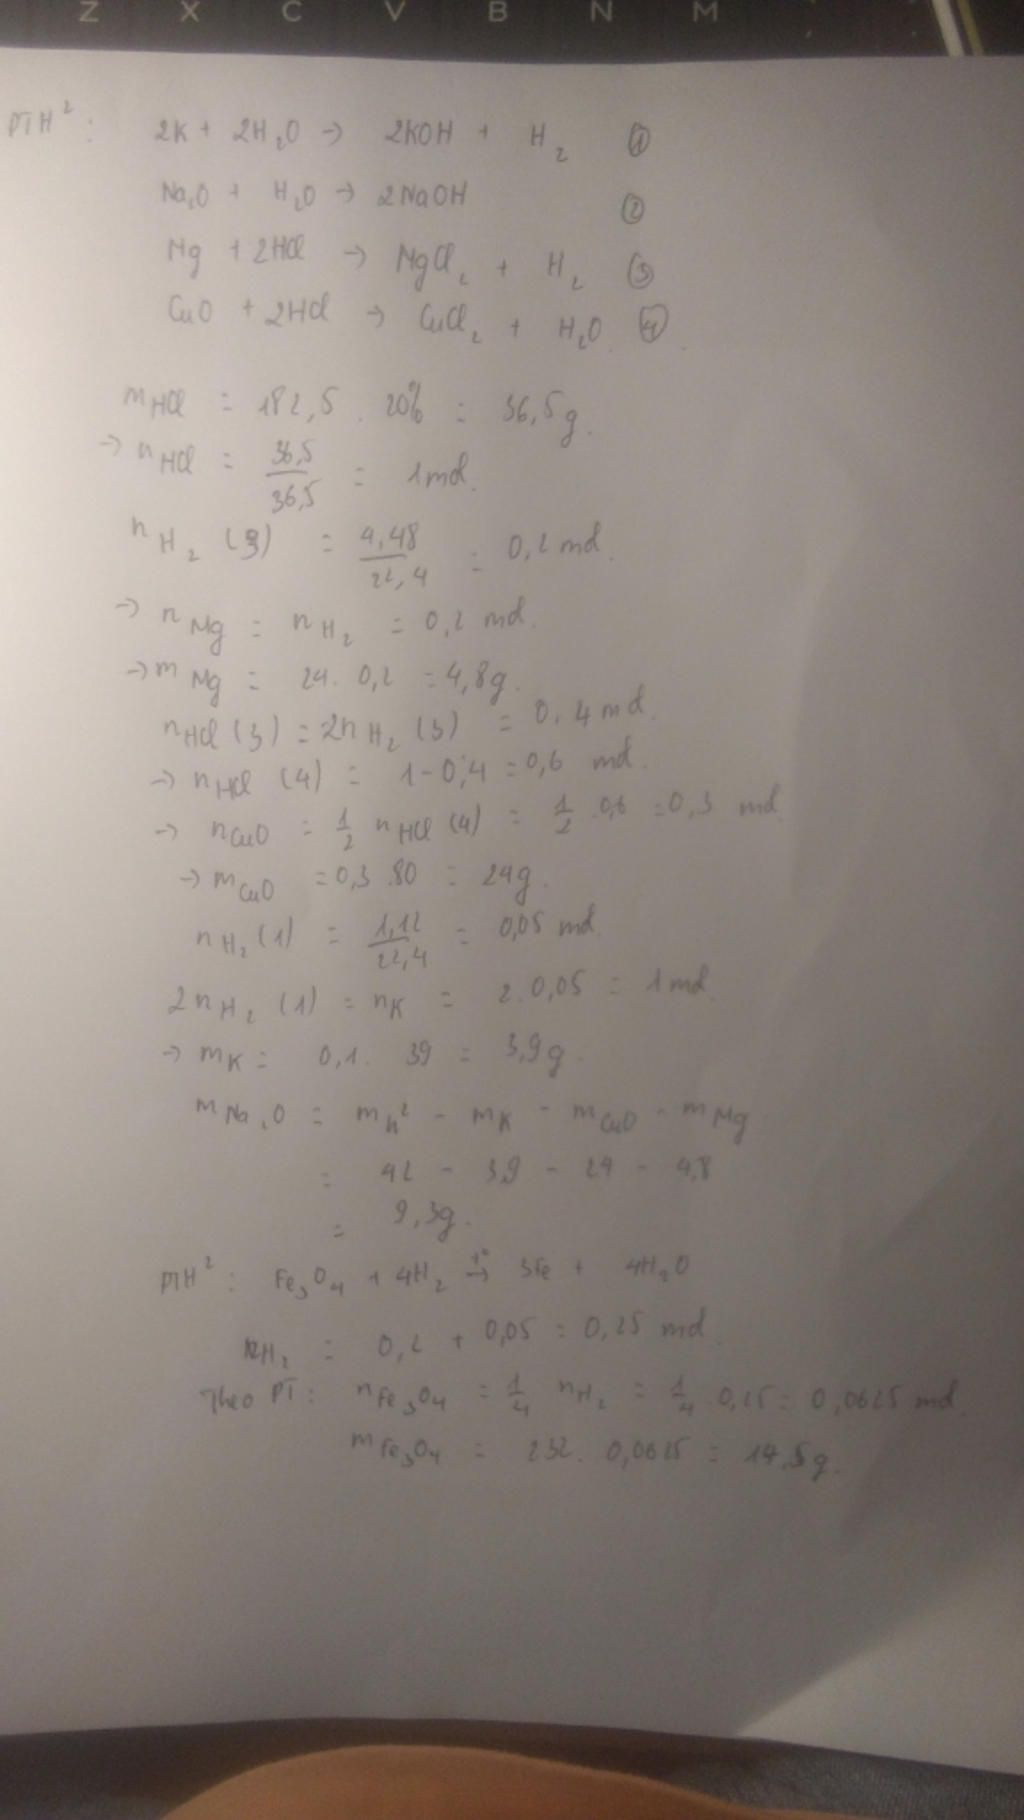 Z X C V B N M
PTH²: 2K + 2H₂O → 2KOH + H₂ ①
Na₂O + H₂O → 2NaOH ②
Mg + 2HCl → MgCl₂ + H₂ ③
CuO + 2HCl → CuCl₂ + H₂O ④
mHCl = 182,5 . 20% = 36,5g.
→ nHCl = 36,5/36,5 = 1mol.
nH₂ (3) = 4,48/22,4 = 0,2 mol.
→ nMg = nH₂ = 0,2 mol.
→ mMg = 24. 0,2 = 4,8g.
nHCl (3) = 2nH₂ (3) = 0,4 mol.
→ nHCl (4) = 1-0,4 = 0,6 mol.
→ nCuO = 1/2 nHCl (4) = 1/2 .0,6 = 0,3 mol
→ mCuO = 0,3 .80 = 24g.
nH₂ (1) = 1,12/22,4 = 0,05 mol.
2nH₂ (1) = nK = 2.0,05 = 1mol.
→ mK = 0,1. 39 = 3,9g.
mNa₂O = mh² - mK - mCuO - mMg
= 42 - 3,9 - 24 - 4,8
= 9,3g.
PTH²: Fe₃O₄ + 4H₂ t°→ 3Fe + 4H₂O
nH₂ = 0,2 + 0,05 = 0,25 mol.
Theo PT: nFe₃O₄ = 1/4 nH₂ = 1/4 .0,25 = 0,0625 mol.
mFe₃O₄ = 232. 0,0625 = 14,5g.